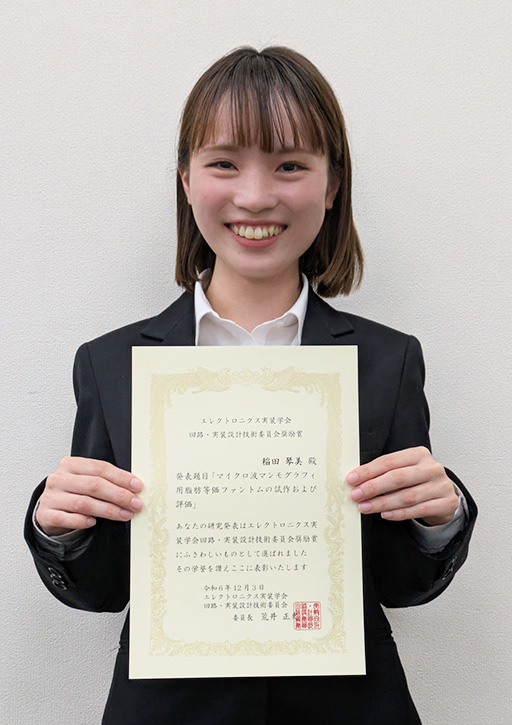 エレクトロニクス実装学会
回路・実装設計技術委員会奨励賞
稲田 琴美 殿
発表題目「マイクロ波マンモグラフィ
用脂肪等価ファントムの試作および
評価」
あなたの研究発表はエレクトロニクス実
装学会回路・実装設計技術委員会奨励賞
にふさわしいものとして選ばれました
その学誉を讃えここに表彰いたします
令和6年12月3日
エレクトロニクス実装学会
回路・実装設計技術委員会
委員長 荒井 正